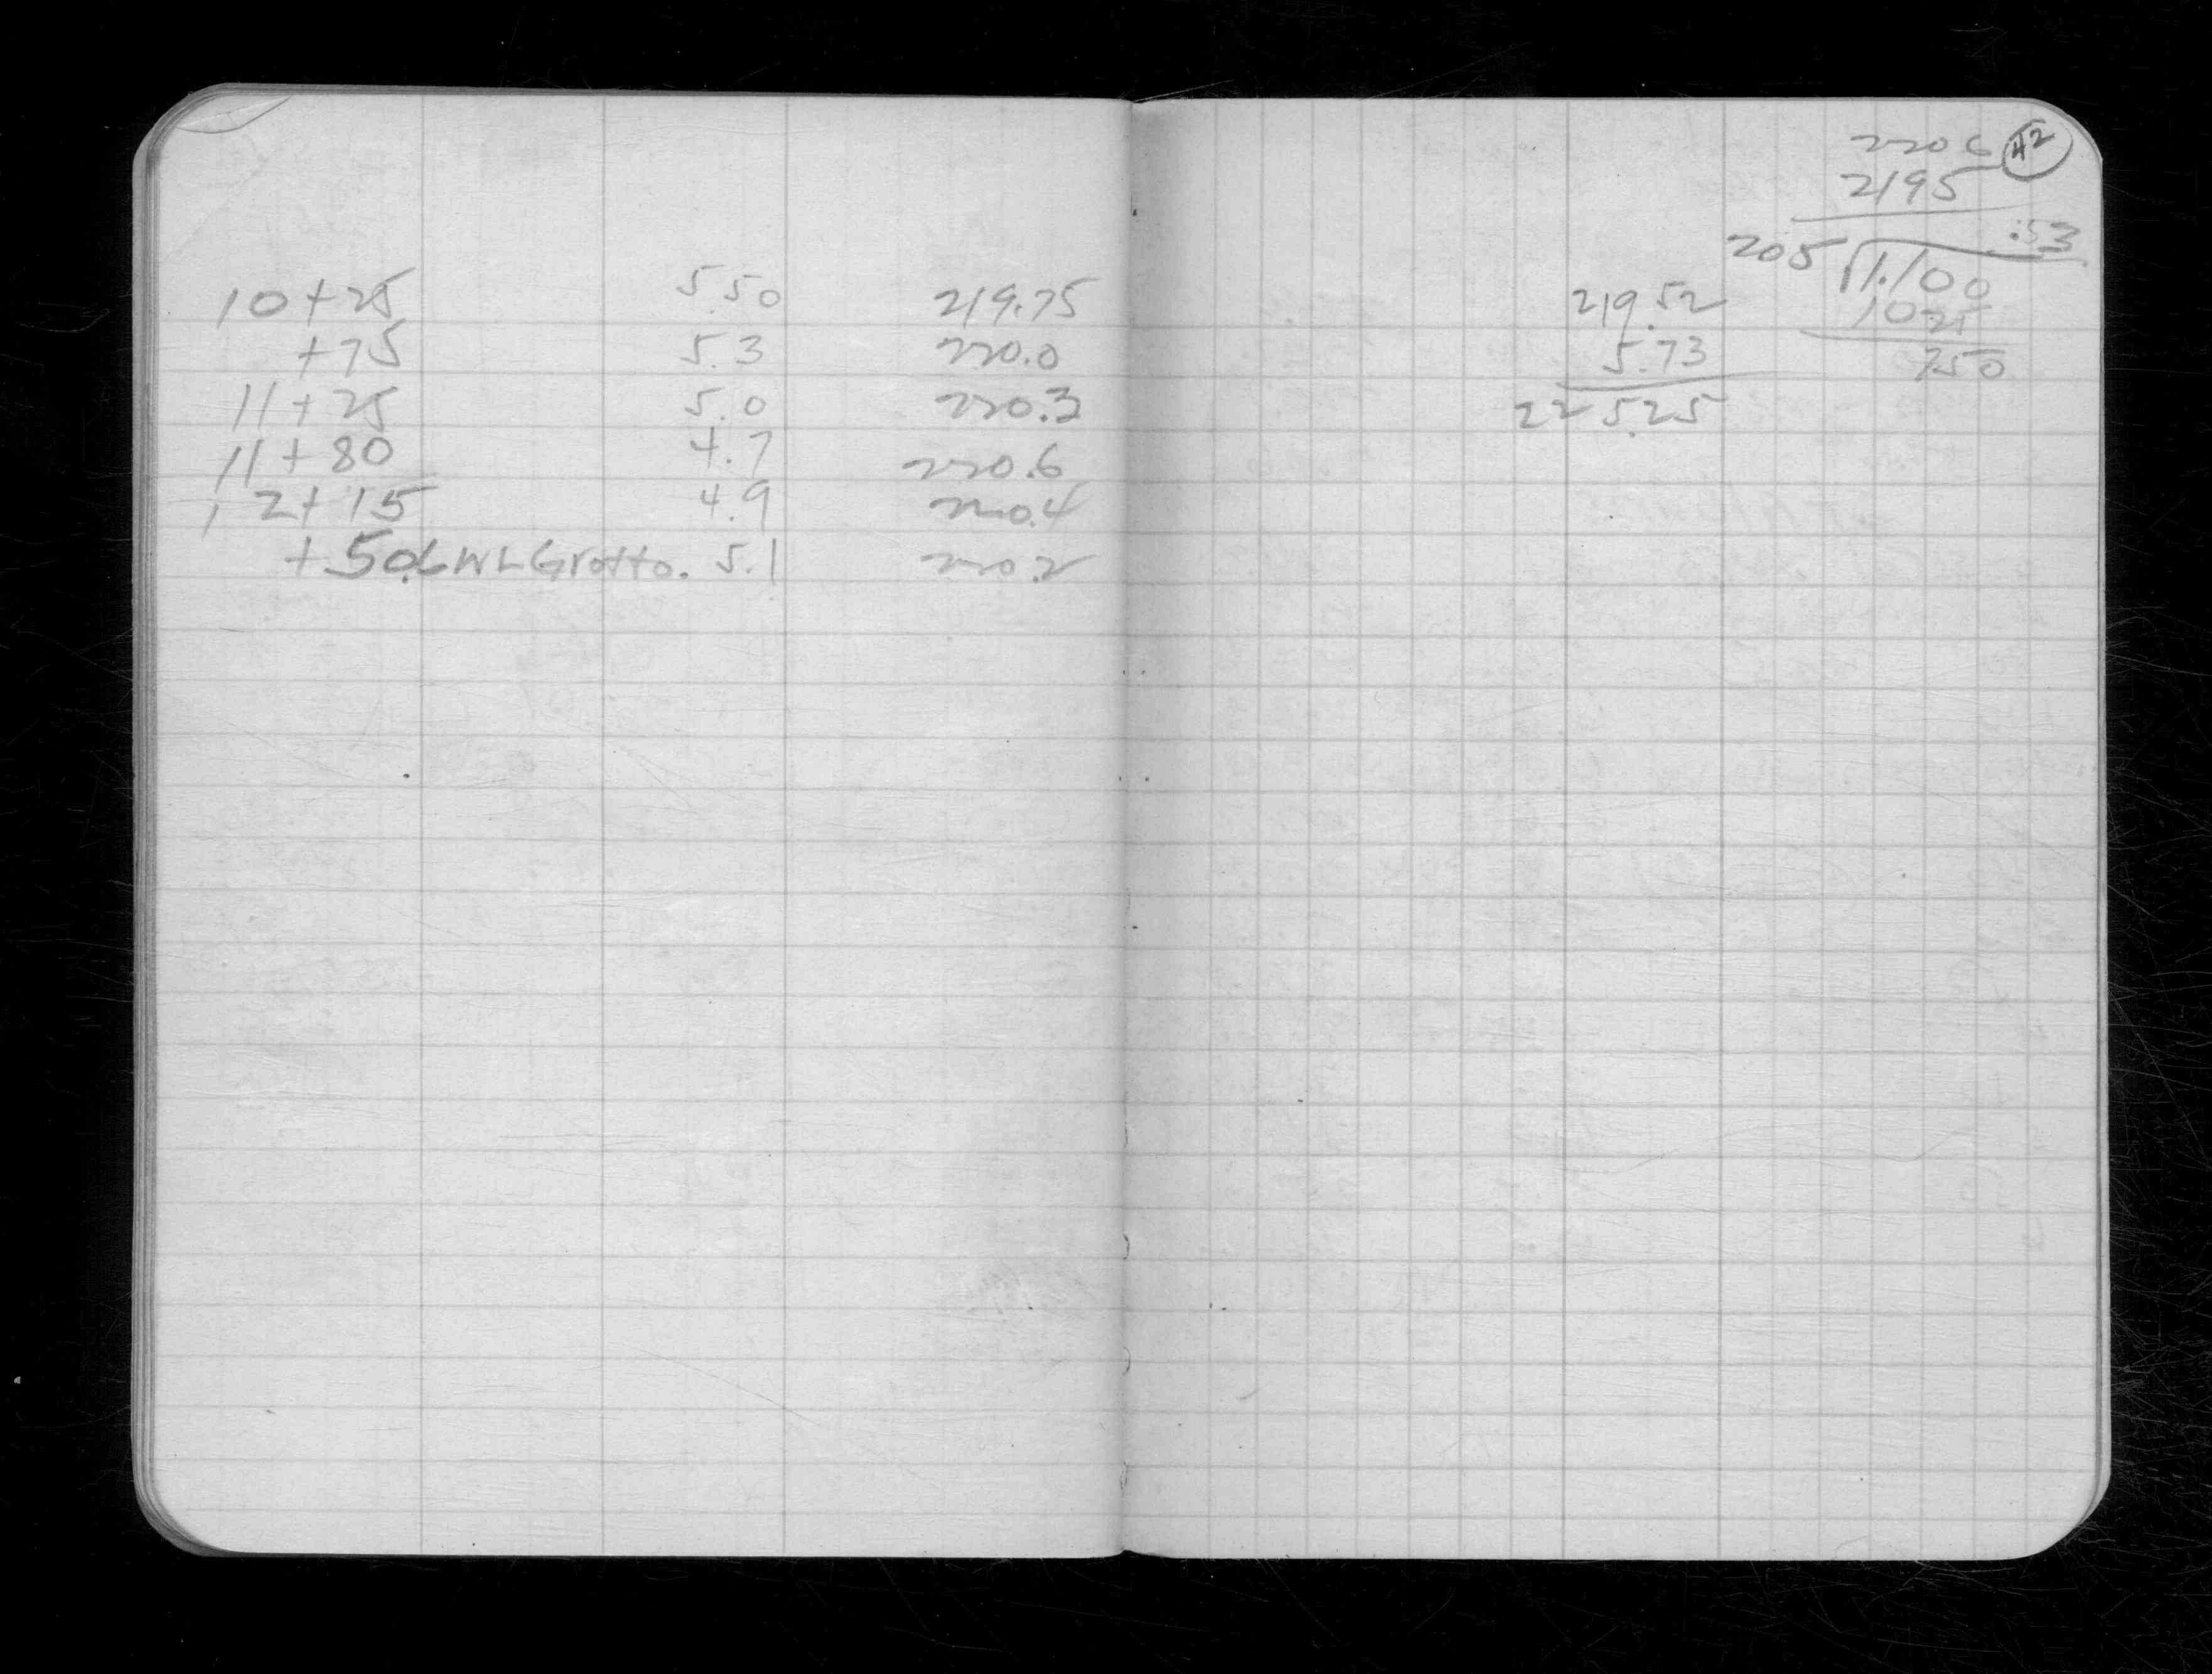 10+25 5.50 219.75
+75 5.3 220.0
11+25 5.0 220.3
11+80 4.7 220.6
12+15 4.9 220.4
+50.6 WL Grotto. 5.1 220.2
42
2206
2195
.53
205 √1.100
1025
750
219.52
5.73
225.25